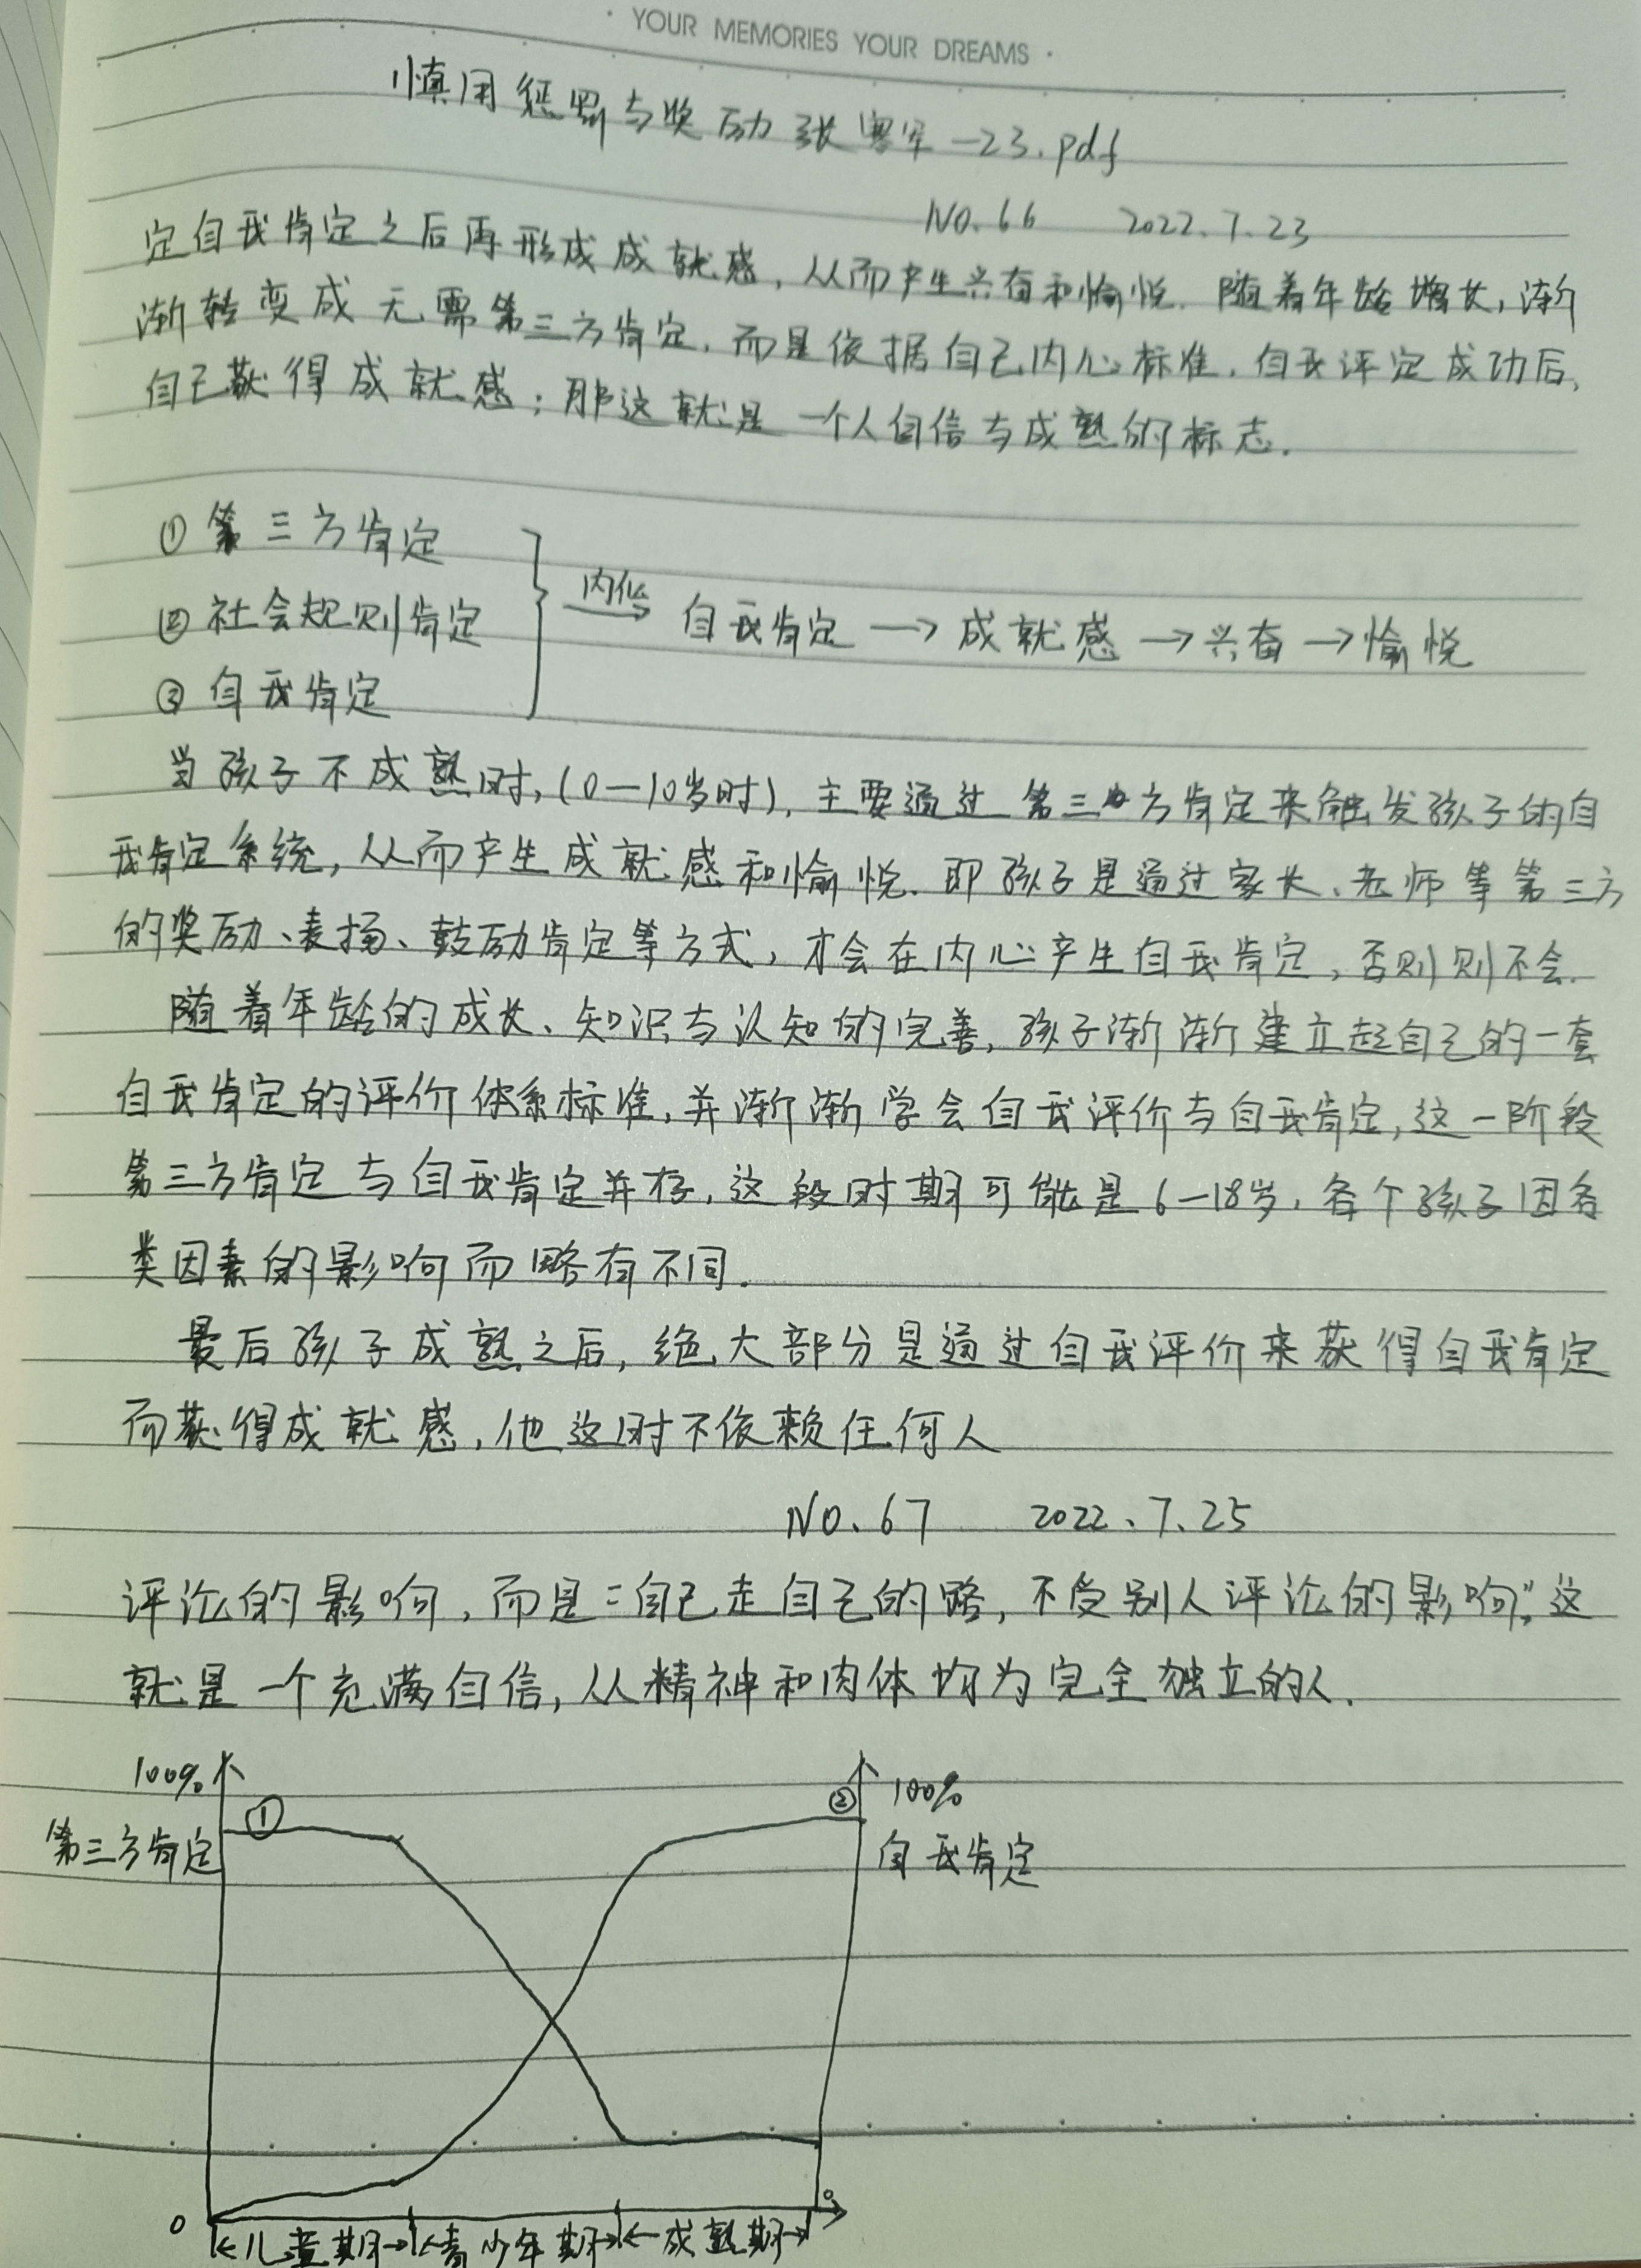 · YOUR MEMORIES YOUR DREAMS ·
慎用惩罚与奖励 张 军-23.pdf
NO.66 2022.7.23
定自我肯定之后再形成成就感，从而产生兴奋和愉悦．随着年龄增长，渐
渐转变成无需第三方肯定，而是依据自己内心标准，自我评定成功后，
自己获得成就感；那这就是一个人自信与成熟的标志．
① 第三方肯定
② 社会规则肯定
③ 自我肯定
内化
自我肯定 → 成就感 → 兴奋 → 愉悦
当孩子不成熟时，(0—10岁时)，主要通过第三方肯定来触发孩子的自
我肯定系统，从而产生成就感和愉悦．即孩子是通过家长、老师等第三方
的奖励、表扬、鼓励肯定等方式，才会在内心产生自我肯定，否则则不会．
随着年龄的成长、知识与认知的完善，孩子渐渐建立起自己的一套
自我肯定的评价体系标准，并渐渐学会自我评价与自我肯定，这一阶段
第三方肯定与自我肯定并存，这段时期可能是6—18岁，各个孩子因各
类因素的影响而略有不同．
最后孩子成熟之后，绝大部分是通过自我评价来获得自我肯定
而获得成就感，他这时不依赖任何人
NO.67 2022.7.25
评论的影响，而是“自己走自己的路，不受别人评论的影响”，这
就是一个充满自信，从精神和肉体均为完全独立的人．
100% ① ② 100%
第三方肯定 自我肯定
0 0
儿童期 青少年期 成熟期